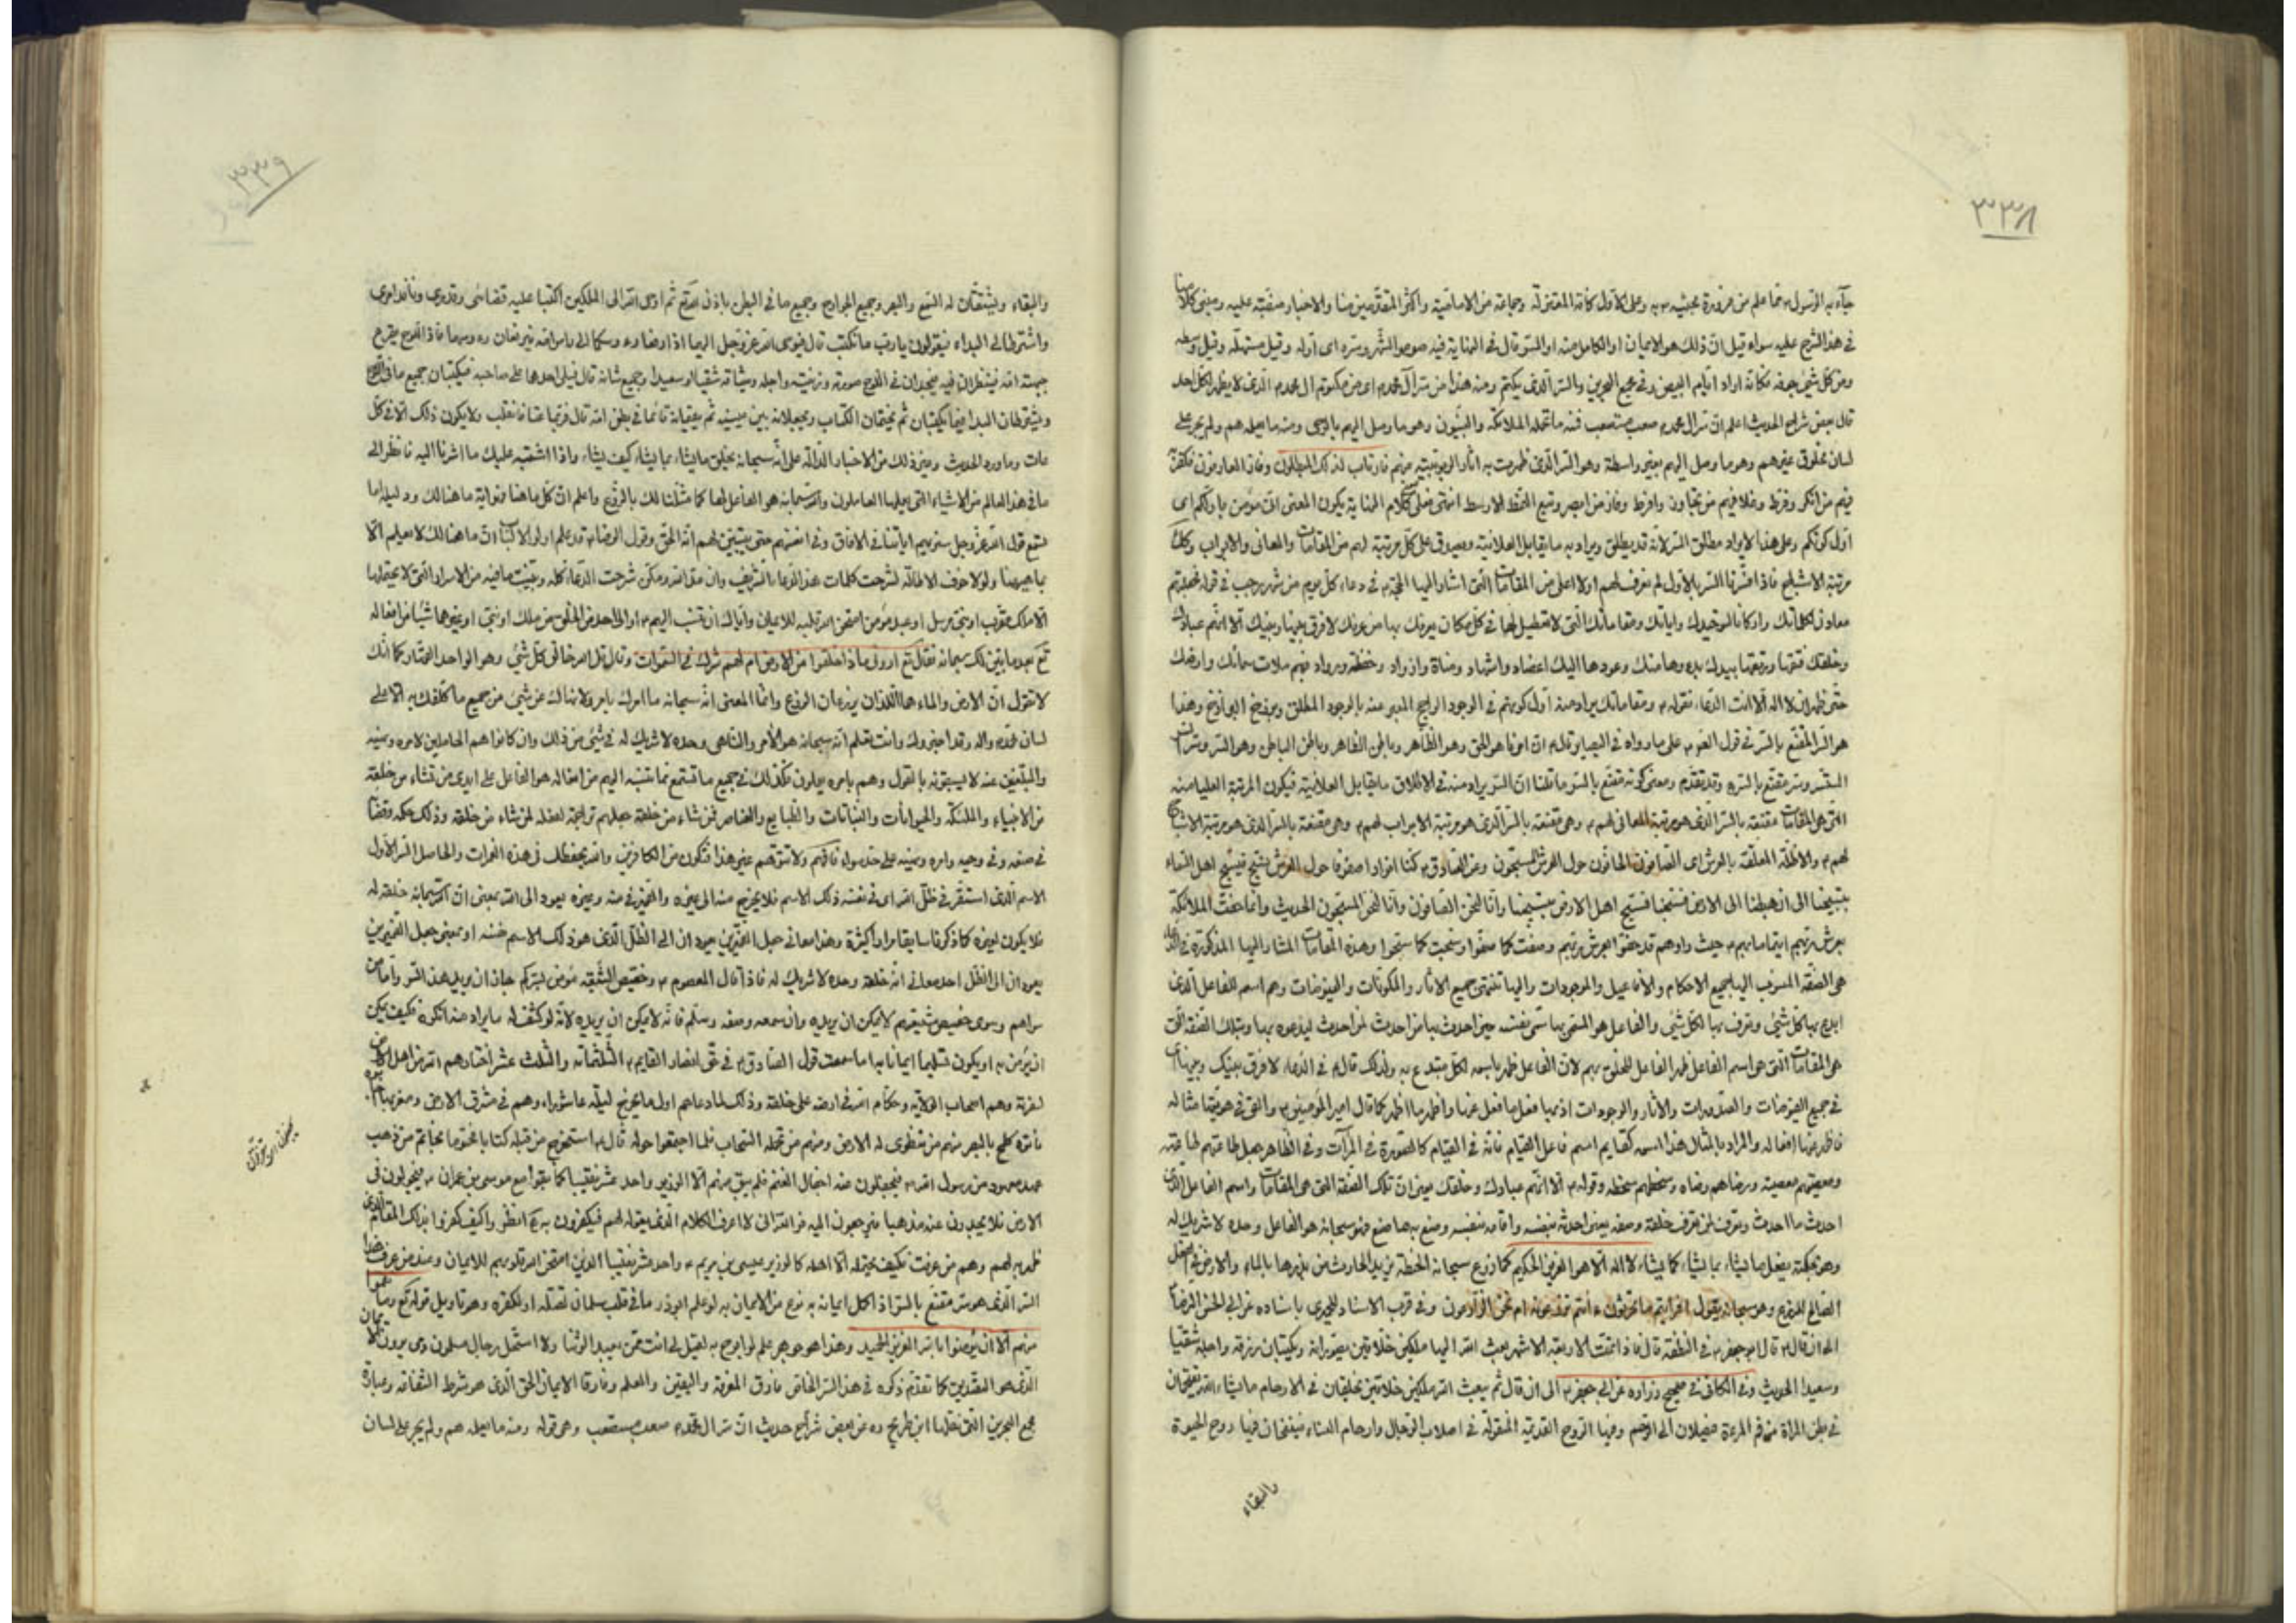 ٣٣٨
جآء به الرسول مما علم من ضرورة مجيئه به وعلى الاول كافة المعتزلة وجماعة من الامامية واكثر المتقدمين منا والاخبار متفقة عليه ومبنى كلامنا
في هذا الشرح عليه سواء قيل ان ذلك هو الايمان او الكامل منه او السر قال في النهاية فيه صوموا الشهر وسره اى اوله وقيل مستهله وقيل وسطه
وسر كل شئ جوفه فكانه اراد ايام البيض وفي مجمع البحرين والسر الذى يكتم ومنه هذا من سر آل محمد اى من مكتوم آل محمد الذى لا يظهر لكل احد
قال بعض شراح الحديث اعلم ان سر آل محمد صعب مستصعب فمنه ما تعلمه الملائكة والنبيون وهو ما وصل اليهم بالوحى ومنه ما يعلمه هم ولم يجر على
لسان مخلوق غيرهم وهو ما وصل اليهم بغير واسطة وهو السر الذى ظهرت به اثار الربوبية منهم فارتاب لذلك المبطلون وفاز العارفون فكفر به
فيهم من انكر وفرط وغلا فيهم من تجاوز وافرط وفاز من ابصر وتبع النمط الاوسط انتهى فعلى كلام النهاية يكون المعنى انى مؤمن باولكم اى
اول كونكم وعلى هذا لا يراد مطلق السر لانه قد يطلق ويراد به ما يقابل العلانية ويصدق على كل مرتبة لهم من المقامات والمعانى والابواب وكك
مرتبة الاشباح فاذا فسرنا السر بالاول لم نعرف لهم اولا اعلى من المقامات التى اشار اليها الحجة في دعاء كل يوم من شهر رجب في قوله فجعلتهم
معادن لكلماتك واركانا لتوحيدك واياتك ومقاماتك التى لا تعطيل لها في كل مكان يعرفك بها من عرفك لا فرق بينها وبينك الا انهم عبادك
وخلقك فتقها ورتقها بيدك بدءها منك وعودها اليك اعضاد واشهاد ومناة واذواد وحفظة ورواد فبهم ملأت سمائك وارضك
حتى ظهر ان لا اله الا انت الدعاء فقوله ومقاماتك يراد منه اول كونهم في الوجود الراجح المعبر عنه بالوجود المطلق وبرزخ البرازخ وهذا
هو السر المقنع بالسر في قول الصادق على ما رواه في البصاير قال ان امرنا هو الحق وهو الظاهر وباطن الظاهر وباطن الباطن وهو السر وسر السر
المستسر وسر مقنع بالسر وقد تقدم ومعنى كونه مقنع بالسر ما قلنا ان السر يراد منه في الاطلاق ما يقابل العلانية فيكون المرتبة العليا منه
التى هى المقامات مقنعة بالسر الذى هو مرتبة المعانى لهم وهى مقنعة بالسر الذى هو مرتبة الابواب لهم وهى مقنعة بالسر الذى هو مرتبة الاشباح
لهم والاظلة المعلقة بالعرش اى الصافون الحافون حول العرش المسبحون وعن الصادق كنا انوارا صفوفا حول العرش نسبح فيسبح اهل السماء
بتسبيحنا الى ان هبطنا الى الارض فسبحنا فسبح اهل الارض بتسبيحنا وانا لنحن الصافون وانا لنحن المسبحون الحديث وانما حفت الملائكة
بعرش ربهم ايتماما بهم حيث راوهم قد حفوا بعرش ربهم وصفت كما صفوا وسبحت كما سبحوا وهذه المقامات المشار اليها المذكورة في الدعاء
هى الصفة المنسوب اليها جميع الاحكام والافاعيل والموجودات واليها تنتهى جميع الاثار والمكونات والفيوضات وهم اسم الفاعل الذى
ابدع بها كل شئ وتعرف بها لكل شئ والفاعل هو المسمى بها سمى نفسه حين احدث بها من احدث لمن احدث ليدعوه بها وبتلك الصفة التى
هى المقامات التى هى اسم الفاعل ظهر الفاعل للمخلوق بهم لان الفاعل ظهر باسمه لكل مبتدع به ولذلك قال في الدعاء لا فرق بينك وبينها
في جميع الفيوضات والصدورات والاثار والوجودات اذ بها فعل ما فعل عنها واظهر بها اظهر كما قال امير المؤمنين والقى في هويتها مثاله
فاظهر عنها افعاله والمراد بالمثال هذا اسمه كقايم اسم فاعل القيام فانه في القيام كالصورة في المرآت وفي الظاهر جعل طاعتهم طاعته
ومعصيتهم معصيته ورضاهم رضاه وسخطهم سخطه وقوله الا انهم عبادك وخلقك يعنى ان تلك الصفة التى هى المقامات واسم الفاعل الذى
احدث ما احدث وتعرف لمن تعرف خلقة وصفة يعنى احدثه بنفسه واقامه بنفسه وصنع به ما صنع فهو سبحانه هو الفاعل وحده لا شريك له
وهو بحكمته يفعل ما يشاء بما يشاء كما يشاء لا اله الا هو العزيز الحكيم كما زرع سبحانه الحنطة من يد الحارث من بذرها بالماء والارض في الفصل
الصالح للزرع وهو سبحانه يقول افرأيتم ما تحرثون ءانتم تزرعونه ام نحن الزارعون وفي قرب الاسناد للحميرى باسناده عن ابي الحسن الرضا
الى ان قال قال ابو جعفر في النطفة قال فاذا تمت الاربعة الاشهر بعث الله اليها ملكين خلاقين يصورانه ويكتبان رزقه واجله شقيا
وسعيدا الحديث وفي الكافى في صحيح زرارة عن ابي جعفر الى ان قال ثم يبعث الله ملكين خلاقين يخلقان في الارحام ما يشاء الله يقتحمان
في بطن المرأة من فم المرءة فيصلان الى الرحم وفيها الروح القديمة المنقولة في اصلاب الرجال وارحام النساء فينفخان فيها روح الحيوة
والبقاء
٣٣٩
والبقاء ويشقان له السمع والبصر وجميع الجوارح وجميع ما في البطن باذن الله تع ثم اوحى الله الى الملكين اكتبا عليه قضائى وقدرى ونافذ امرى
واشترطا لى البداء فيقولون يا رب ما نكتب قال فيوحى الله عز وجل اليهما ان ارفعا رءوسكما الى راس امه فيرفعان رءوسهما فاذا اللوح يقرع
جبهة امه فينظران فيه فيجدان في اللوح صورته وزينته واجله وميثاقه شقيا او سعيدا وجميع شانه قال فيملى احدهما على صاحبه فيكتبان جميع ما في اللوح
ويشترطان البداء فيما يكتبان ثم يختمان الكتاب ويجعلانه بين عينيه ثم يقيمانه قائما في بطن امه قال فربما عتا فانقلب ولا يكون ذلك الا في كل
عات وما ورد الحديث وغير ذلك من الاخبار الدالة على انه سبحانه يخلق ما يشاء بما يشاء كيف يشاء واذا اشتبه عليك ما اشرنا اليه فانظر الى
ما في هذا العالم من الاشياء التى يعملها العاملون والله سبحانه هو الفاعل لها كما مثلنا لك بالزرع واعلم ان كل ما هنا فهو اية ما هنالك ودليله اما
تسمع قول الله عز وجل سنريهم اياتنا في الافاق وفي انفسهم حتى يتبين لهم انه الحق وقول الرضا قد علم اولوا الالباب ان ما هنالك لا يعلم الا
بما هيهنا ولولا خوف الاطالة لشرحت كلمات هذا الدعاء الشريف وان مد الله ومكن شرحت الدعاء كله وبينت ما فيه من الاسرار التى لا يحتملها
الا ملك مقرب او نبى مرسل او عبد مؤمن امتحن الله قلبه للايمان واياك ان تنسب اليهم او الى احد من الخلق من ملك او نبى او غيرهما شيئا من افعاله
تع بعد ما بين لك سبحانه فقال تع ارونى ماذا خلقوا من الارض ام لهم شرك في السموات وقال قل الله خالق كل شئ وهو الواحد القهار وكما انك
لا تقول ان الارض والماء هما اللذان يزرعان الزرع وانما المعنى انه سبحانه ما امرك بامر ولا نهاك عن شئ من جميع ما كلفك به الا على
لسان محمد واله وقد اخبروك وانت تعلم انه سبحانه هو الآمر والناهى وحده لا شريك له في شئ من ذلك وان كانوا هم الحاملين لامره ونهيه
والمبلغين عنه لا يسبقونه بالقول وهم بامره يعملون فكذلك في جميع ما تسمع مما ننسبه اليهم من افعاله هو الفاعل على ايدى من شاء من خلقه
من الانبياء والملئكة والحيوانات والنباتات والطبايع والعناصر فمن شاء من خلقه جعلهم تراجمة لفعله لمن شاء من خلقه وذلك حكمه وقضاؤه
في صنعه وفي وحيه وامره ونهيه على حد سواء فافهم ولا تتوهم غير هذا فتكون من الكافرين والله يحفظك في هذه الغمرات والحاصل السر الاول
الاسم الذى استقر في ظل الله اى في نفسه ذلك الاسم فلا يخرج منه الى غيره والضمير في منه وغيره يعود الى الله بمعنى ان الله سبحانه خلقه له
فلا يكون لغيره كما ذكرنا سابقا مرارا كثيرة وهذا معانى جعل الضميرين يعودان الى الظل الذى هو ذلك الاسم نفسه او بمعنى جعل الضميرين
يعودان الى الظل احد معانى انه خلقه وحده لا شريك له فاذا قال المعصوم وخصيص الشيعة مؤمن بسركم جاز ان يريد هذا السر واما من
سواهم وسوى خصيص شيعتهم لا يمكن ان يريده وان سمعه وصفه وسلم فانه لا يمكن ان يريده لانه لو كشف له ما يراد منه انكره فكيف يمكن
ان يؤمن به او يكون تسليما ايمانا به اما سمعت قول الصادق في حق انصار القايم الثلثمائة والثلث عشر اختارهم الله من اهل الارض
لنصرته وهم اصحاب الولاية وحكام الله في ارضه على خلقه وذلك لما دعاهم اول ما يخرج ليلة عاشوراء وهم في مشرق الارض ومغربها
فاتوه كلمح بالبصر منهم من تطوى له الارض ومنهم من تحمله السحاب فلما اجتمعوا حوله قال استخرج من قبله كتابا مختوما بخاتم من ذهب
عهد معهود من رسول الله فيجفلون عنه اجفال الغنم فلم يبق منهم الا الوزير واحد عشر نقيبا كما بقوا مع موسى بن عمران فيجولون في
الارض فلا يجدون عنه مذهبا فيرجعون اليه فوالله انى لاعرف الكلام الذى يقوله لهم فيكفرون به تع انظر واكيف كفروا بذلك المقام الذى
ظهر به لهم وهم من عرفت فكيف يحتمله الا اهله كالوزير عيسى بن مريم واحد عشر نقيبا الذين امتحن الله قلوبهم للايمان وعند من عرف هذا
السر الذى هو سر مقنع بالسر اذ اكمل ايمانه به نوع من الايمان به لو علم ابوذر ما في قلب سلمان لقتله او لكفره وهو تاويل قوله تع وما نقموا
منهم الا ان يؤمنوا بالله العزيز الحميد وهذا هو جوهر علم لو ابوح به لقيل لى انت ممن يعبد الوثنا ولا استحل رجال مسلمون دمى يرون
الذى هو التصديق كما تقدم ذكره في هذا السر الخاص فارق المعرفة واليقين والعلم وفارقا الايمان الحق الذى هو شرط الشفاعة وعبارة
مجمع البحرين التى نقلها ابن طريح ره عن بعض شراح حديث ان سر آل محمد صعب مستصعب وهى قوله ومنه ما يعلمه هم ولم يجر على لسان